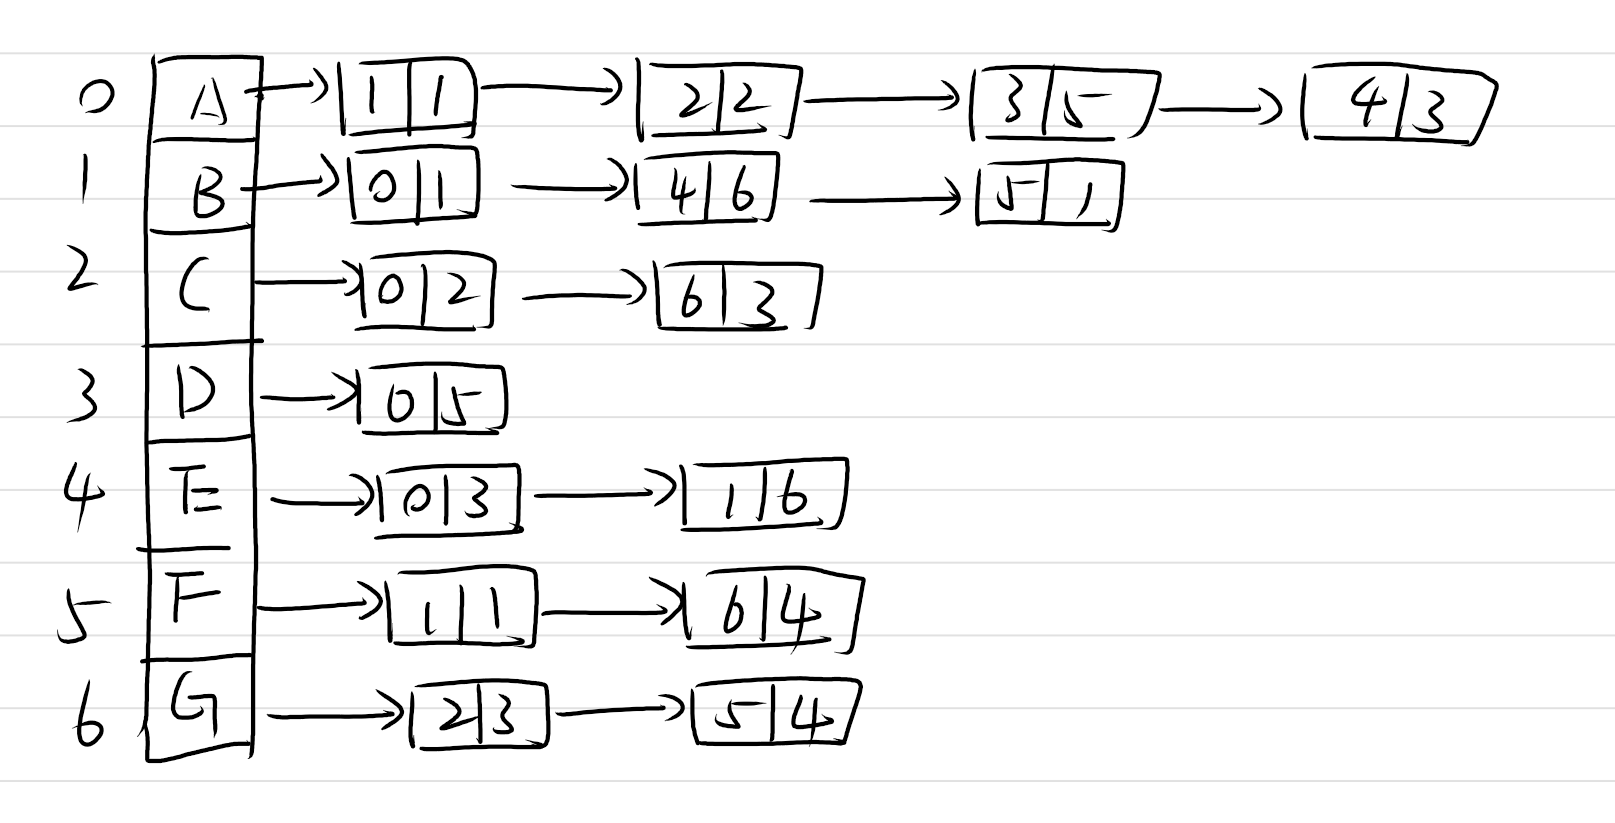 0 A 1 1 2 2 3 5 4 3
1 B 0 1 4 6 5 1
2 C 0 2 6 3
3 D 0 5
4 E 0 3 1 6
5 F 1 1 6 4
6 G 2 3 5 4